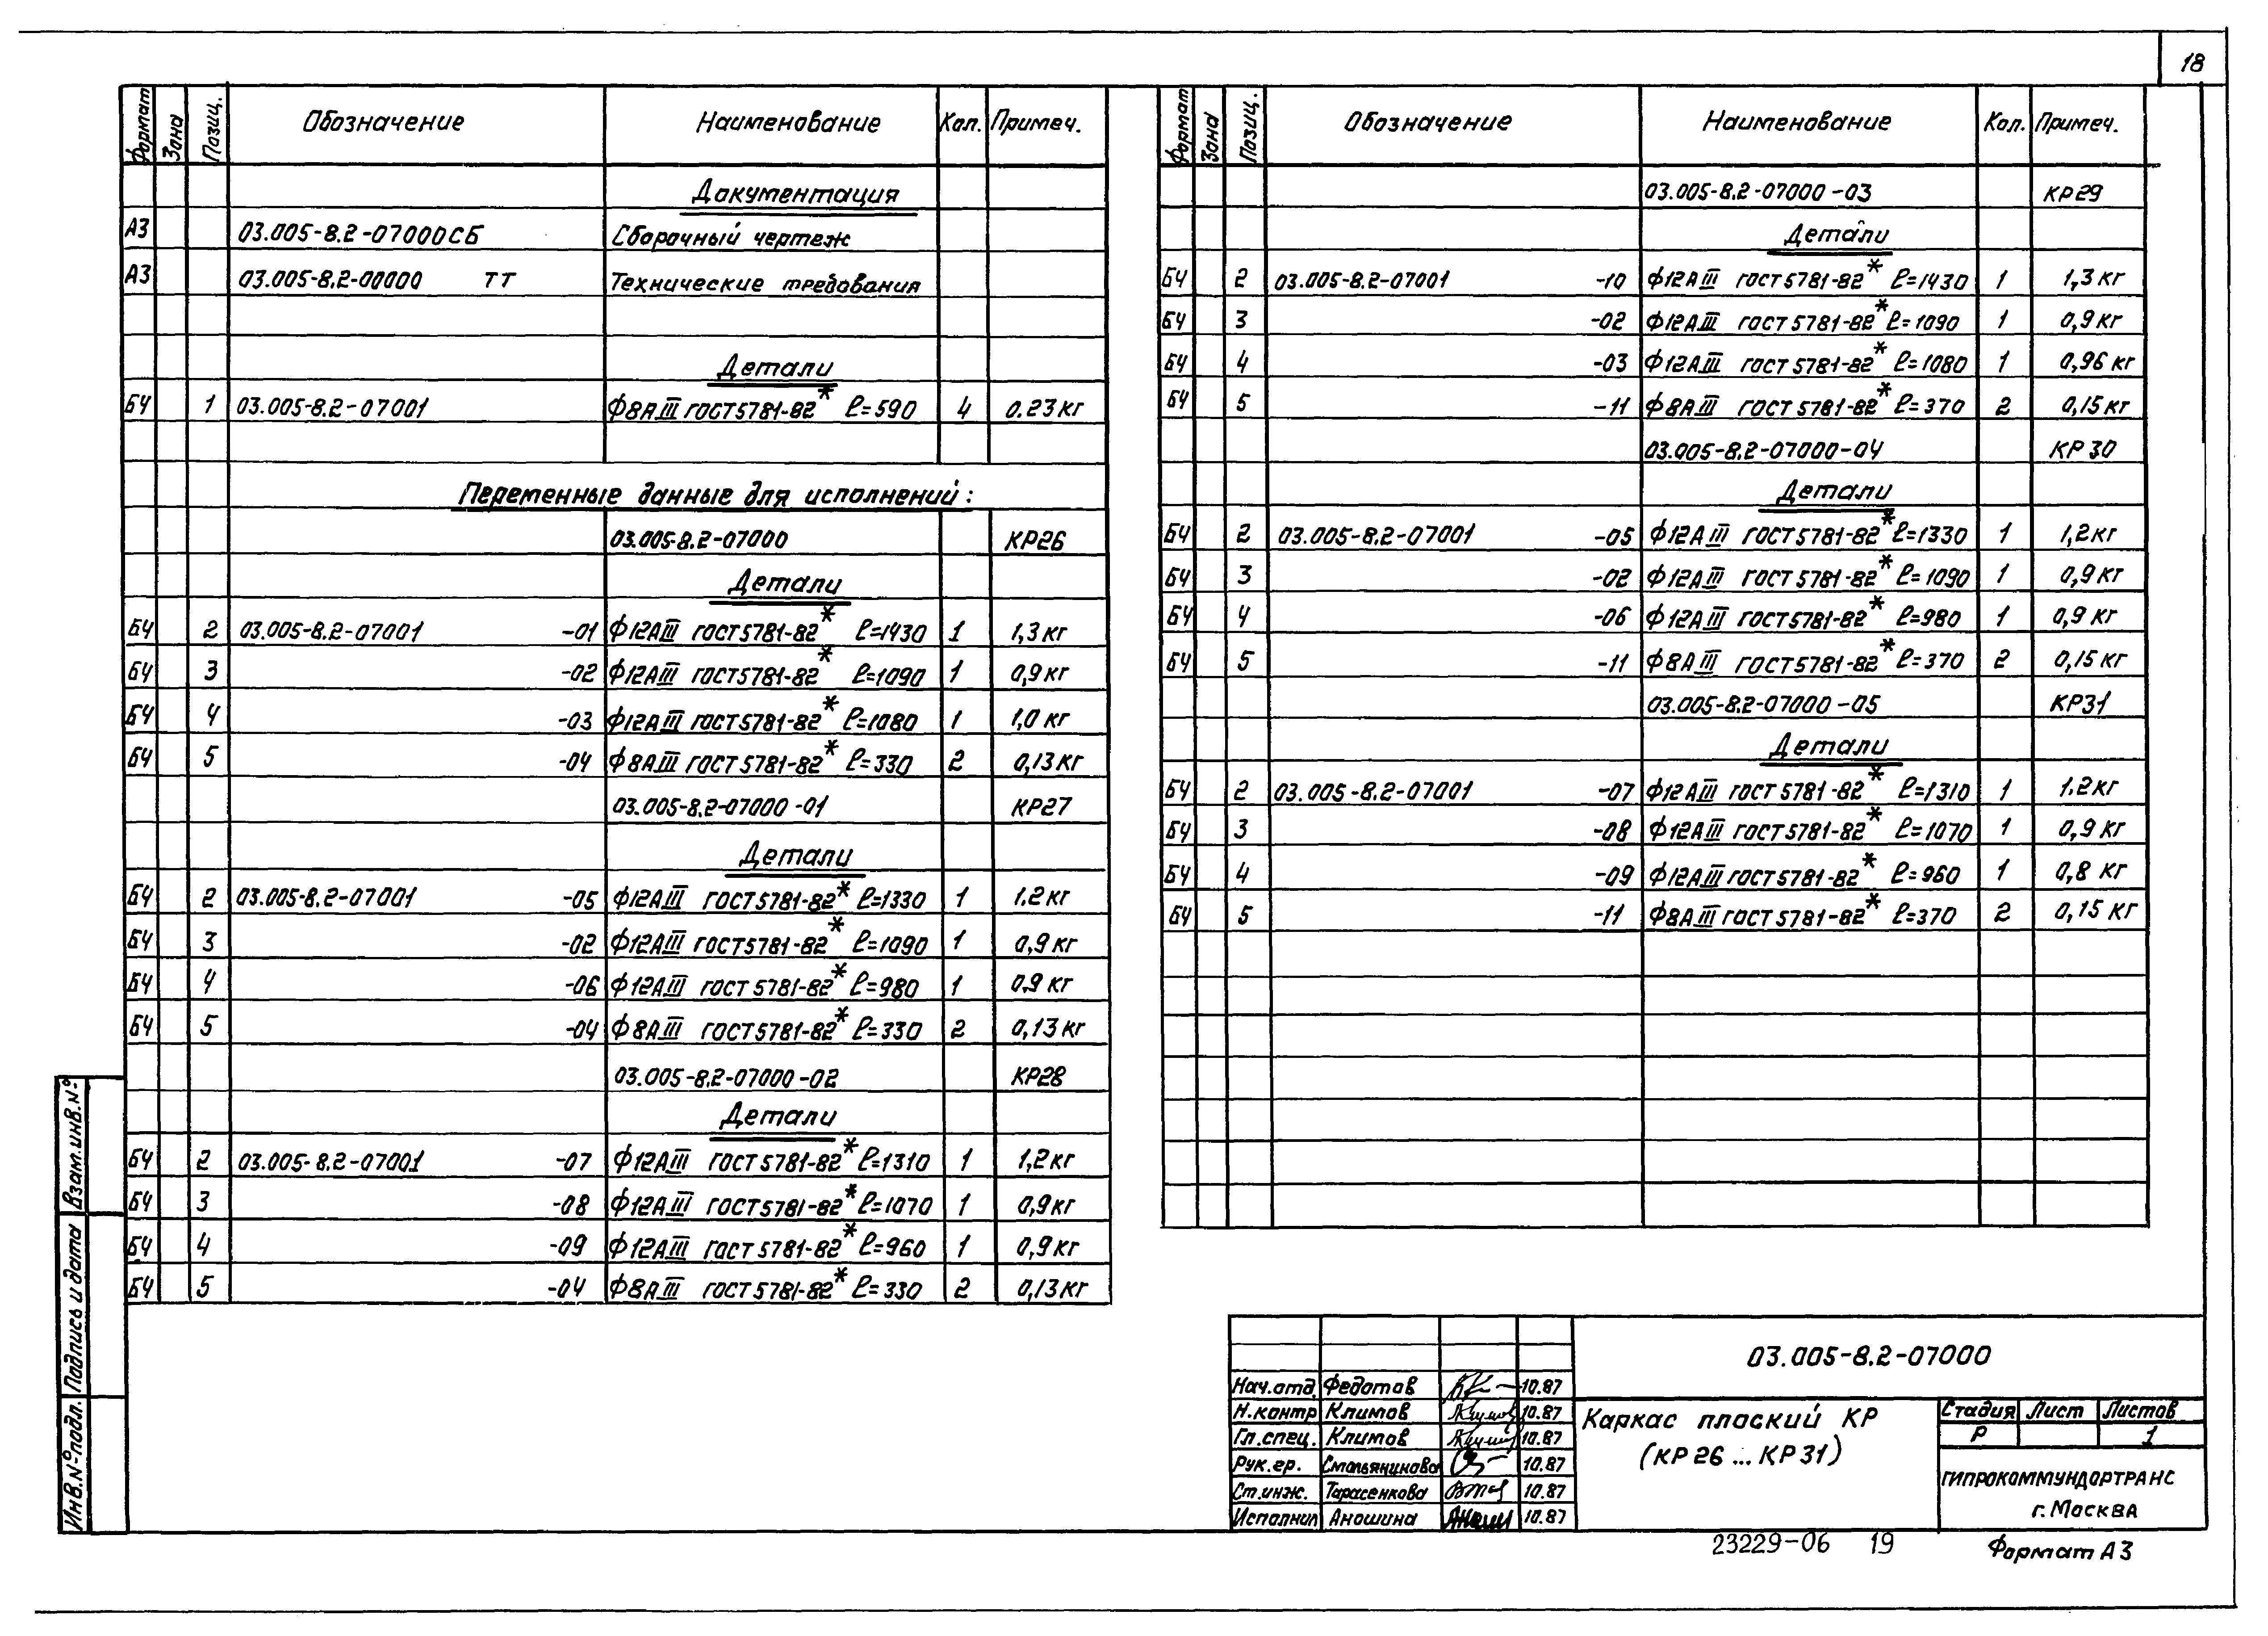 18
Формат Зона Позиц. Обозначение Наименование Кол. Примеч.
Документация
А3 03.005-8.2-07000СБ Сборочный чертеж
А3 03.005-8.2-00000 ТТ Технические требования
Детали
БЧ 1 03.005-8.2-07001 Ф8АIII ГОСТ 5781-82* ℓ=590 4 0.23 кг
Переменные данные для исполнений:
03.005-8.2-07000 КР26
Детали
БЧ 2 03.005-8.2-07001 -01 Ф12АIII ГОСТ 5781-82* ℓ=1430 1 1,3 кг
БЧ 3 -02 Ф12АIII ГОСТ 5781-82* ℓ=1090 1 0,9 кг
БЧ 4 -03 Ф12АIII ГОСТ 5781-82* ℓ=1080 1 1,0 кг
БЧ 5 -04 Ф8АIII ГОСТ 5781-82* ℓ=330 2 0,13 кг
03.005-8.2-07000 -01 КР27
Детали
БЧ 2 03.005-8.2-07001 -05 Ф12АIII ГОСТ 5781-82* ℓ=1330 1 1.2 кг
БЧ 3 -02 Ф12АIII ГОСТ 5781-82* ℓ=1090 1 0,9 кг
БЧ 4 -06 Ф12АIII ГОСТ 5781-82* ℓ=980 1 0.9 кг
БЧ 5 -04 Ф8АIII ГОСТ 5781-82* ℓ=330 2 0,13 кг
03.005-8.2-07000 -02 КР28
Детали
БЧ 2 03.005-8.2-07001 -07 Ф12АIII ГОСТ 5781-82* ℓ=1310 1 1,2 кг
БЧ 3 -08 Ф12АIII ГОСТ 5781-82* ℓ=1070 1 0,9 кг
БЧ 4 -09 Ф12АIII ГОСТ 5781-82* ℓ=960 1 0,9 кг
БЧ 5 -04 Ф8АIII ГОСТ 5781-82* ℓ=330 2 0,13 кг
Формат Зона Позиц. Обозначение Наименование Кол. Примеч.
03.005-8.2-07000 -03 КР29
Детали
БЧ 2 03.005-8.2-07001 -10 Ф12АIII ГОСТ 5781-82* ℓ=1430 1 1,3 кг
БЧ 3 -02 Ф12АIII ГОСТ 5781-82* ℓ=1090 1 0,9 кг
БЧ 4 -03 Ф12АIII ГОСТ 5781-82* ℓ=1080 1 0,96 кг
БЧ 5 -11 Ф8АIII ГОСТ 5781-82* ℓ=370 2 0,15 кг
03.005-8.2-07000-04 КР 30
Детали
БЧ 2 03.005-8.2-07001 -05 Ф12АIII ГОСТ 5781-82* ℓ=1330 1 1,2 кг
БЧ 3 -02 Ф12АIII ГОСТ 5781-82* ℓ=1090 1 0,9 кг
БЧ 4 -06 Ф12АIII ГОСТ 5781-82* ℓ=980 1 0,9 кг
БЧ 5 -11 Ф8АIII ГОСТ 5781-82* ℓ=370 2 0,15 кг
03.005-8.2-07000 -05 КР31
Детали
БЧ 2 03.005-8.2-07001 -07 Ф12АIII ГОСТ 5781-82* ℓ=1310 1 1.2 кг
БЧ 3 -08 Ф12АIII ГОСТ 5781-82* ℓ=1070 1 0,9 кг
БЧ 4 -09 Ф12АIII ГОСТ 5781-82* ℓ=960 1 0,8 кг
БЧ 5 -11 Ф8АIII ГОСТ 5781-82* ℓ=370 2 0,15 кг
Взам.инв.№
Подпись и дата
Инв.№ подл.
03.005-8.2-07000
Нач.отд. Федотов 10.87
Н.контр Климов 10.87
Гл.спец. Климов 10.87
Рук.гр. Смольянинова 10.87
Ст.инж. Тарасенкова 10.87
Исполнил Аношина 10.87
Каркас плоский КР
(КР 26 ... КР 31)
Стадия Лист Листов
Р 1
ГИПРОКОММУНДОРТРАНС
г. Москва
23229-06 19
Формат А3